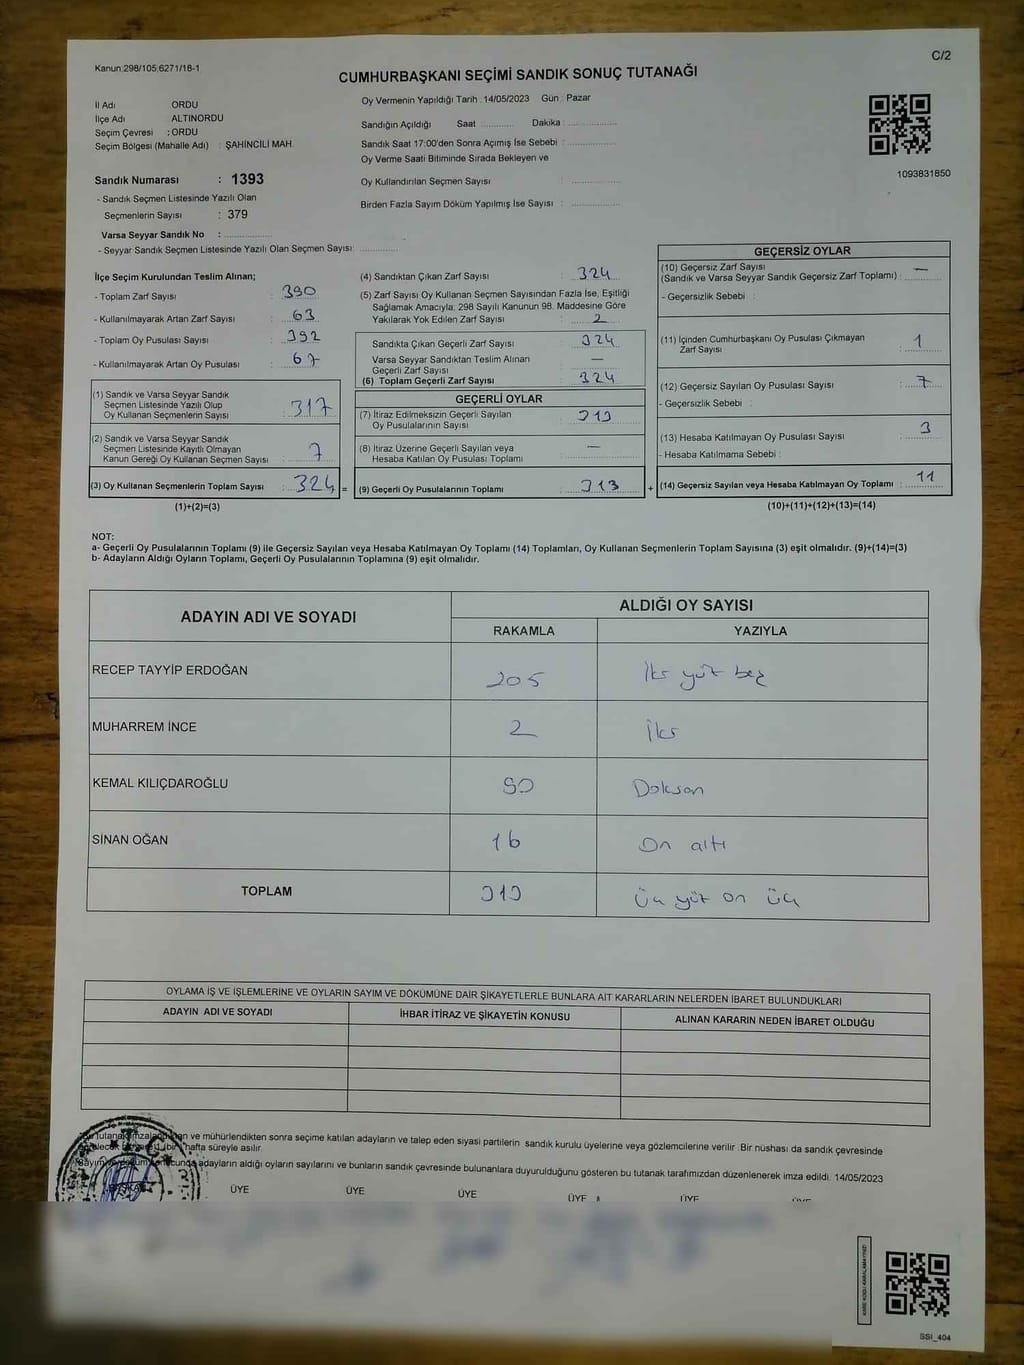 C/2
Kanun:298/105;6271/18-1
CUMHURBAŞKANI SEÇİMİ SANDIK SONUÇ TUTANAĞI
İl Adı ORDU
İlçe Adı ALTINORDU
Seçim Çevresi : ORDU
Seçim Bölgesi (Mahalle Adı) : ŞAHİNCİLİ MAH.
Sandık Numarası : 1393
- Sandık Seçmen Listesinde Yazılı Olan
Seçmenlerin Sayısı : 379
Varsa Seyyar Sandık No :
- Seyyar Sandık Seçmen Listesinde Yazılı Olan Seçmen Sayısı:
Oy Vermenin Yapıldığı Tarih : 14/05/2023 Gün : Pazar
Sandığın Açıldığı Saat Dakika :
Sandık Saat 17:00'den Sonra Açımış İse Sebebi :
Oy Verme Saati Bitiminde Sırada Bekleyen ve
Oy Kullandırılan Seçmen Sayısı :
Birden Fazla Sayım Döküm Yapılmış İse Sayısı :
1093831850
İlçe Seçim Kurulundan Teslim Alınan;
- Toplam Zarf Sayısı : 390
- Kullanılmayarak Artan Zarf Sayısı : 63
- Toplam Oy Pusulası Sayısı : 392
- Kullanılmayarak Artan Oy Pusulası : 67
(1) Sandık ve Varsa Seyyar Sandık
Seçmen Listesinde Yazılı Olup
Oy Kullanan Seçmenlerin Sayısı : 317
(2) Sandık ve Varsa Seyyar Sandık
Seçmen Listesinde Kayıtlı Olmayan
Kanun Gereği Oy Kullanan Seçmen Sayısı : 7
(3) Oy Kullanan Seçmenlerin Toplam Sayısı : 324 =
(1)+(2)=(3)
(4) Sandıktan Çıkan Zarf Sayısı : 324
(5) Zarf Sayısı Oy Kullanan Seçmen Sayısından Fazla İse, Eşitliği
Sağlamak Amacıyla; 298 Sayılı Kanunun 98. Maddesine Göre
Yakılarak Yok Edilen Zarf Sayısı : 2
Sandıkta Çıkan Geçerli Zarf Sayısı : 324
Varsa Seyyar Sandıktan Teslim Alınan
Geçerli Zarf Sayısı : —
(6) Toplam Geçerli Zarf Sayısı : 324
GEÇERLİ OYLAR
(7) İtiraz Edilmeksizin Geçerli Sayılan
Oy Pusulalarının Sayısı : 313
(8) İtiraz Üzerine Geçerli Sayılan veya
Hesaba Katılan Oy Pusulası Toplamı : —
(9) Geçerli Oy Pusulalarının Toplamı : 313 +
GEÇERSİZ OYLAR
(10) Geçersiz Zarf Sayısı
(Sandık ve Varsa Seyyar Sandık Geçersiz Zarf Toplamı) : —
- Geçersizlik Sebebi :
(11) İçinden Cumhurbaşkanı Oy Pusulası Çıkmayan
Zarf Sayısı : 1
(12) Geçersiz Sayılan Oy Pusulası Sayısı : 7
- Geçersizlik Sebebi :
(13) Hesaba Katılmayan Oy Pusulası Sayısı : 3
- Hesaba Katılmama Sebebi :
(14) Geçersiz Sayılan veya Hesaba Katılmayan Oy Toplamı : 11
(10)+(11)+(12)+(13)=(14)
NOT:
a- Geçerli Oy Pusulalarının Toplamı (9) ile Geçersiz Sayılan veya Hesaba Katılmayan Oy Toplamı (14) Toplamları, Oy Kullanan Seçmenlerin Toplam Sayısına (3) eşit olmalıdır. (9)+(14)=(3)
b- Adayların Aldığı Oyların Toplamı, Geçerli Oy Pusulalarının Toplamına (9) eşit olmalıdır.
ADAYIN ADI VE SOYADI ALDIĞI OY SAYISI
RAKAMLA YAZIYLA
RECEP TAYYİP ERDOĞAN 205 İki yüz beş
MUHARREM İNCE 2 İki
KEMAL KILIÇDAROĞLU 90 Doksan
SİNAN OĞAN 16 On altı
TOPLAM 313 Üç yüz on üç
OYLAMA İŞ VE İŞLEMLERİNE VE OYLARIN SAYIM VE DÖKÜMÜNE DAİR ŞİKAYETLERLE BUNLARA AİT KARARLARIN NELERDEN İBARET BULUNDUKLARI
ADAYIN ADI VE SOYADI İHBAR İTİRAZ VE ŞİKAYETİN KONUSU ALINAN KARARIN NEDEN İBARET OLDUĞU
ve mühürlendikten sonra seçime katılan adayların ve talep eden siyasi partilerin sandık kurulu üyelerine veya gözlemcilerine verilir. Bir nüshası da sandık çevresinde
hafta süreyle asılır.
adayların aldığı oyların sayılarını ve bunların sandık çevresinde bulunanlara duyurulduğunu gösteren bu tutanak tarafımızdan düzenlenerek imza edildi. 14/05/2023
ÜYE ÜYE ÜYE ÜYE ÜYE ÜYE
SSI_404